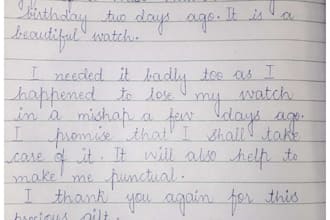 birthday two days ago. It is a
beautiful watch.
I needed it badly too as I
happened to lose my watch
in a mishap a few days ago.
I promise that I shall take
care of it. It will also help to
make me punctual.
I thank you again for this
precious gift.